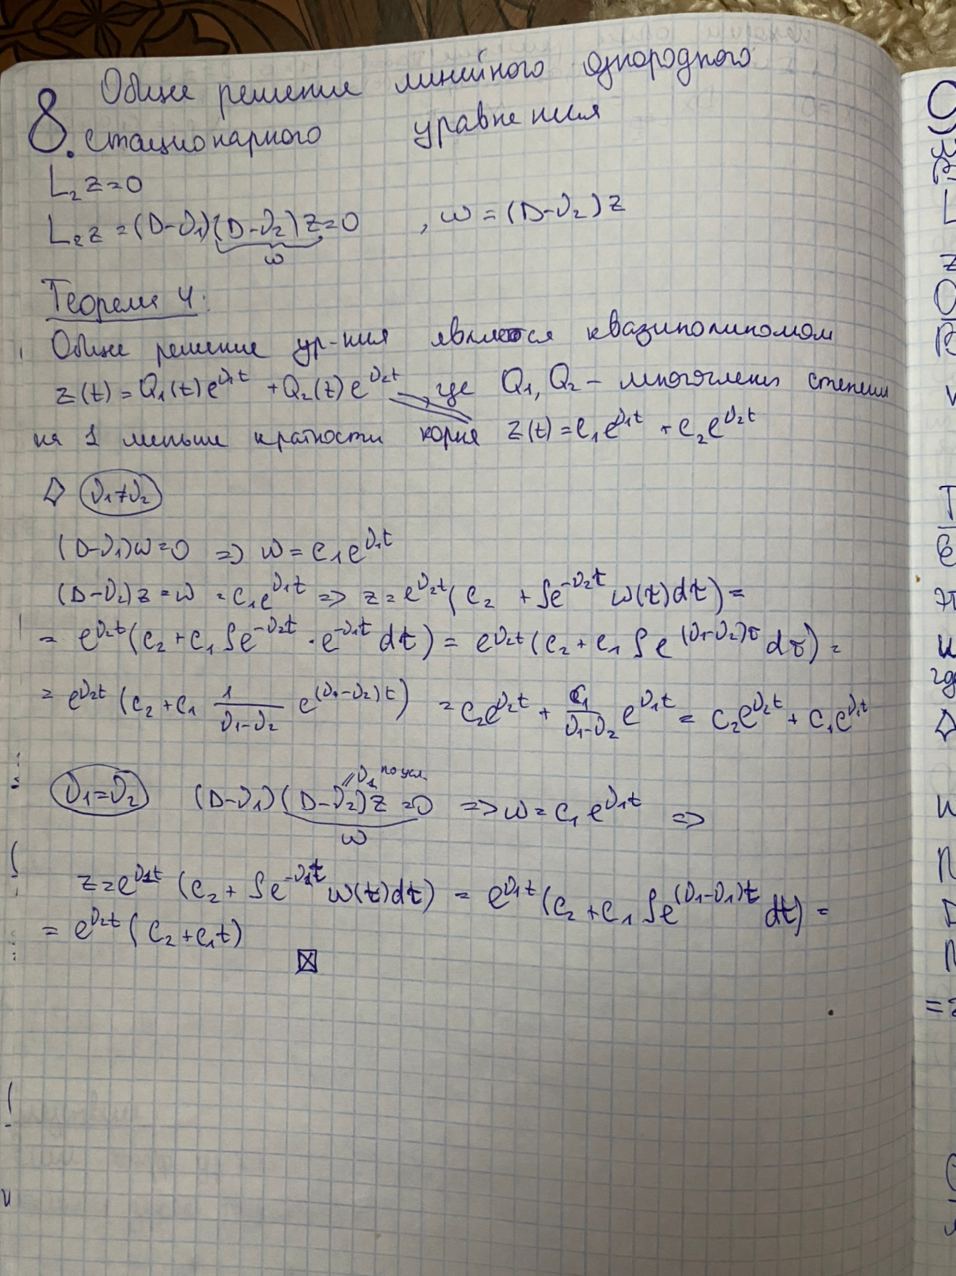 8. Общее решение линейного однородного
стационарного уравнения
L₂z=0
L₂z = (D-ν₁)(D-ν₂)z=0 , ω = (D-ν₂)z
ω
Теорема 4:
Общее решение ур-ния является квазиполиномом
z(t) = Q₁(t)e^{ν₁t} + Q₂(t)e^{ν₂t}, где Q₁, Q₂ - многочлены степени
на 1 меньше кратности корня z(t) = c₁e^{ν₁t} + c₂e^{ν₂t}
ν₁≠ν₂
(D-ν₁)ω=0 => ω = c₁e^{ν₁t}
(D-ν₂)z = ω = c₁e^{ν₁t} => z = e^{ν₂t}(c₂ + ∫e^{-ν₂t} ω(t)dt) =
= e^{ν₂t}(c₂+c₁∫e^{-ν₂t}·e^{-ν₁t}dt) = e^{ν₂t}(c₂+c₁∫e^{(ν₁-ν₂)τ}dτ) =
= e^{ν₂t}(c₂+c₁ 1/(ν₁-ν₂) e^{(ν₁-ν₂)t}) = c₂e^{ν₂t} + c₁/(ν₁-ν₂) e^{ν₁t} = c₂e^{ν₂t} + c₁e^{ν₁t}
=ν₁ по усл.
ν₁=ν₂ (D-ν₁)(D-ν₂)z=0 => ω = c₁e^{ν₁t} =>
ω
z = e^{ν₁t}(c₂ + ∫e^{-ν₁t} ω(t)dt) = e^{ν₁t}(c₂+c₁∫e^{(ν₁-ν₁)t}dt) =
= e^{ν₂t}(c₂+c₁t)